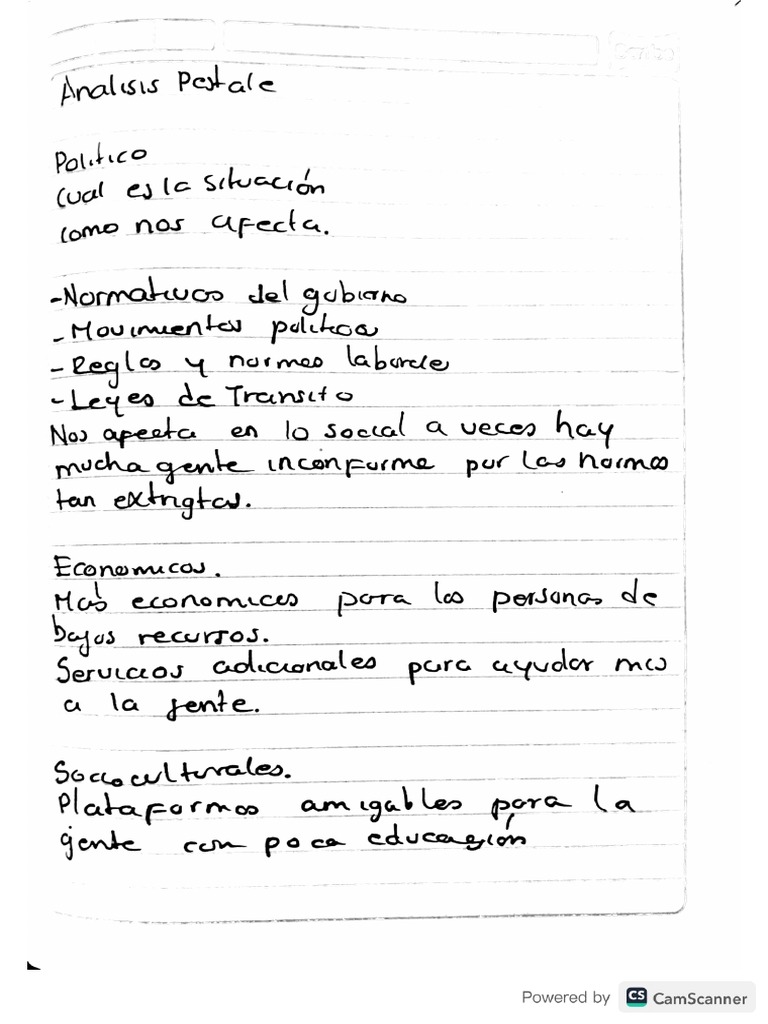 Analisis Pestale
Politico
Cual es la situación
como nos afecta.
-Normativos del gobierno
-Movimientos politicos
-Reglas y normas laborales
-Leyes de Transito
Nos afecta en lo social a veces hay
mucha gente inconforme por las normas
tan extrigtas.
Economicos.
Más economicos para las personas de
bajos recursos.
Servicios adicionales para ayudar mas
a la gente.
Socioculturales.
Plataformas amigables para la
gente con poca educación
Powered by CS CamScanner